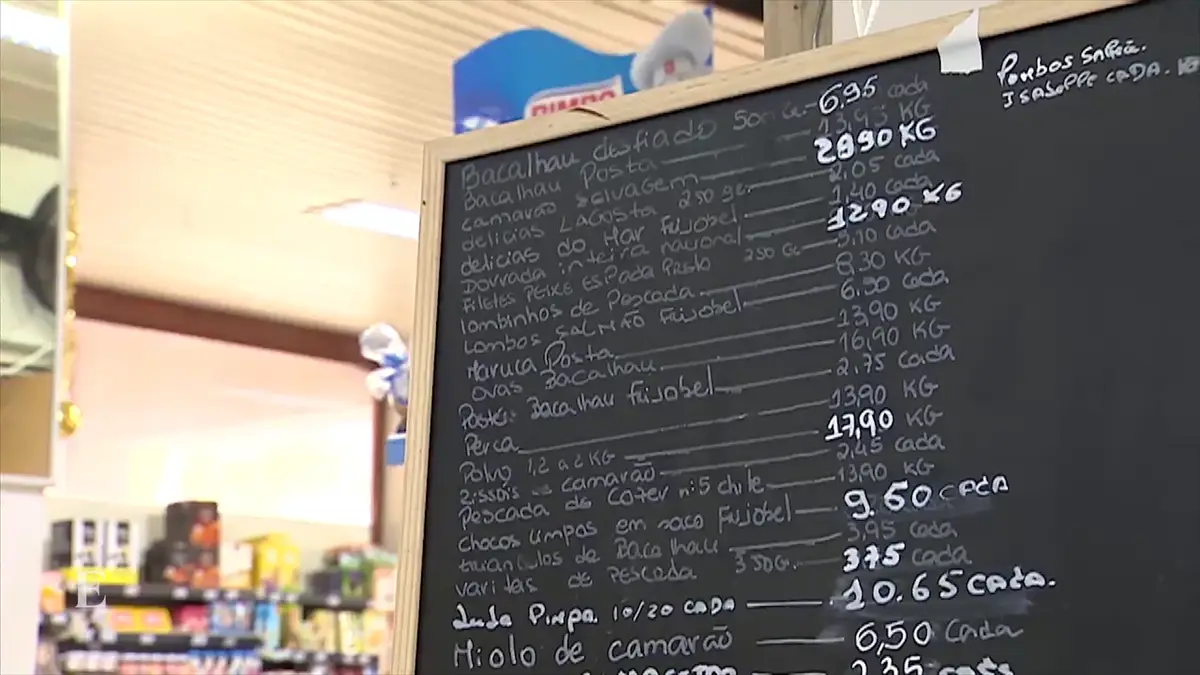 BIMBO
Bacalhau desfiado 500 G. - 6.95 cada
Bacalhau Posta 13,95 KG
camarão selvagem 2890 KG
delicias LAGOSTA 250 gr. 2,05 cada
delicias do Mar Frijobel 1,40 cada
Dourada inteira nacional 1290 KG
Filetes PEIXE ESPADA Preto 250 Gr 3,10 cada
lombinhos de Pescada 8,30 KG
Lombos SALMÃO Frijobel 6,90 cada
Maruca Posta 13,90 KG
Ovas Bacalhau 16,90 KG
Pasteis Bacalhau Frijobel 2,75 cada
Perca 13,90 KG
Polvo 1,2 a 2 KG 17,90 KG
Rissois camarão 2,45 cada
Pescada de Cozer nº5 chile 13,90 KG
Chocos limpos em saco Frijobel 9.60 CADA
triangulos de Bacalhau 3,95 cada
varitas de PESCADA 350G. 375 cada
10/20 CADA 10.65 cada.
Miolo de camarão 6,50 cada
2,35 cada
CADA.
E